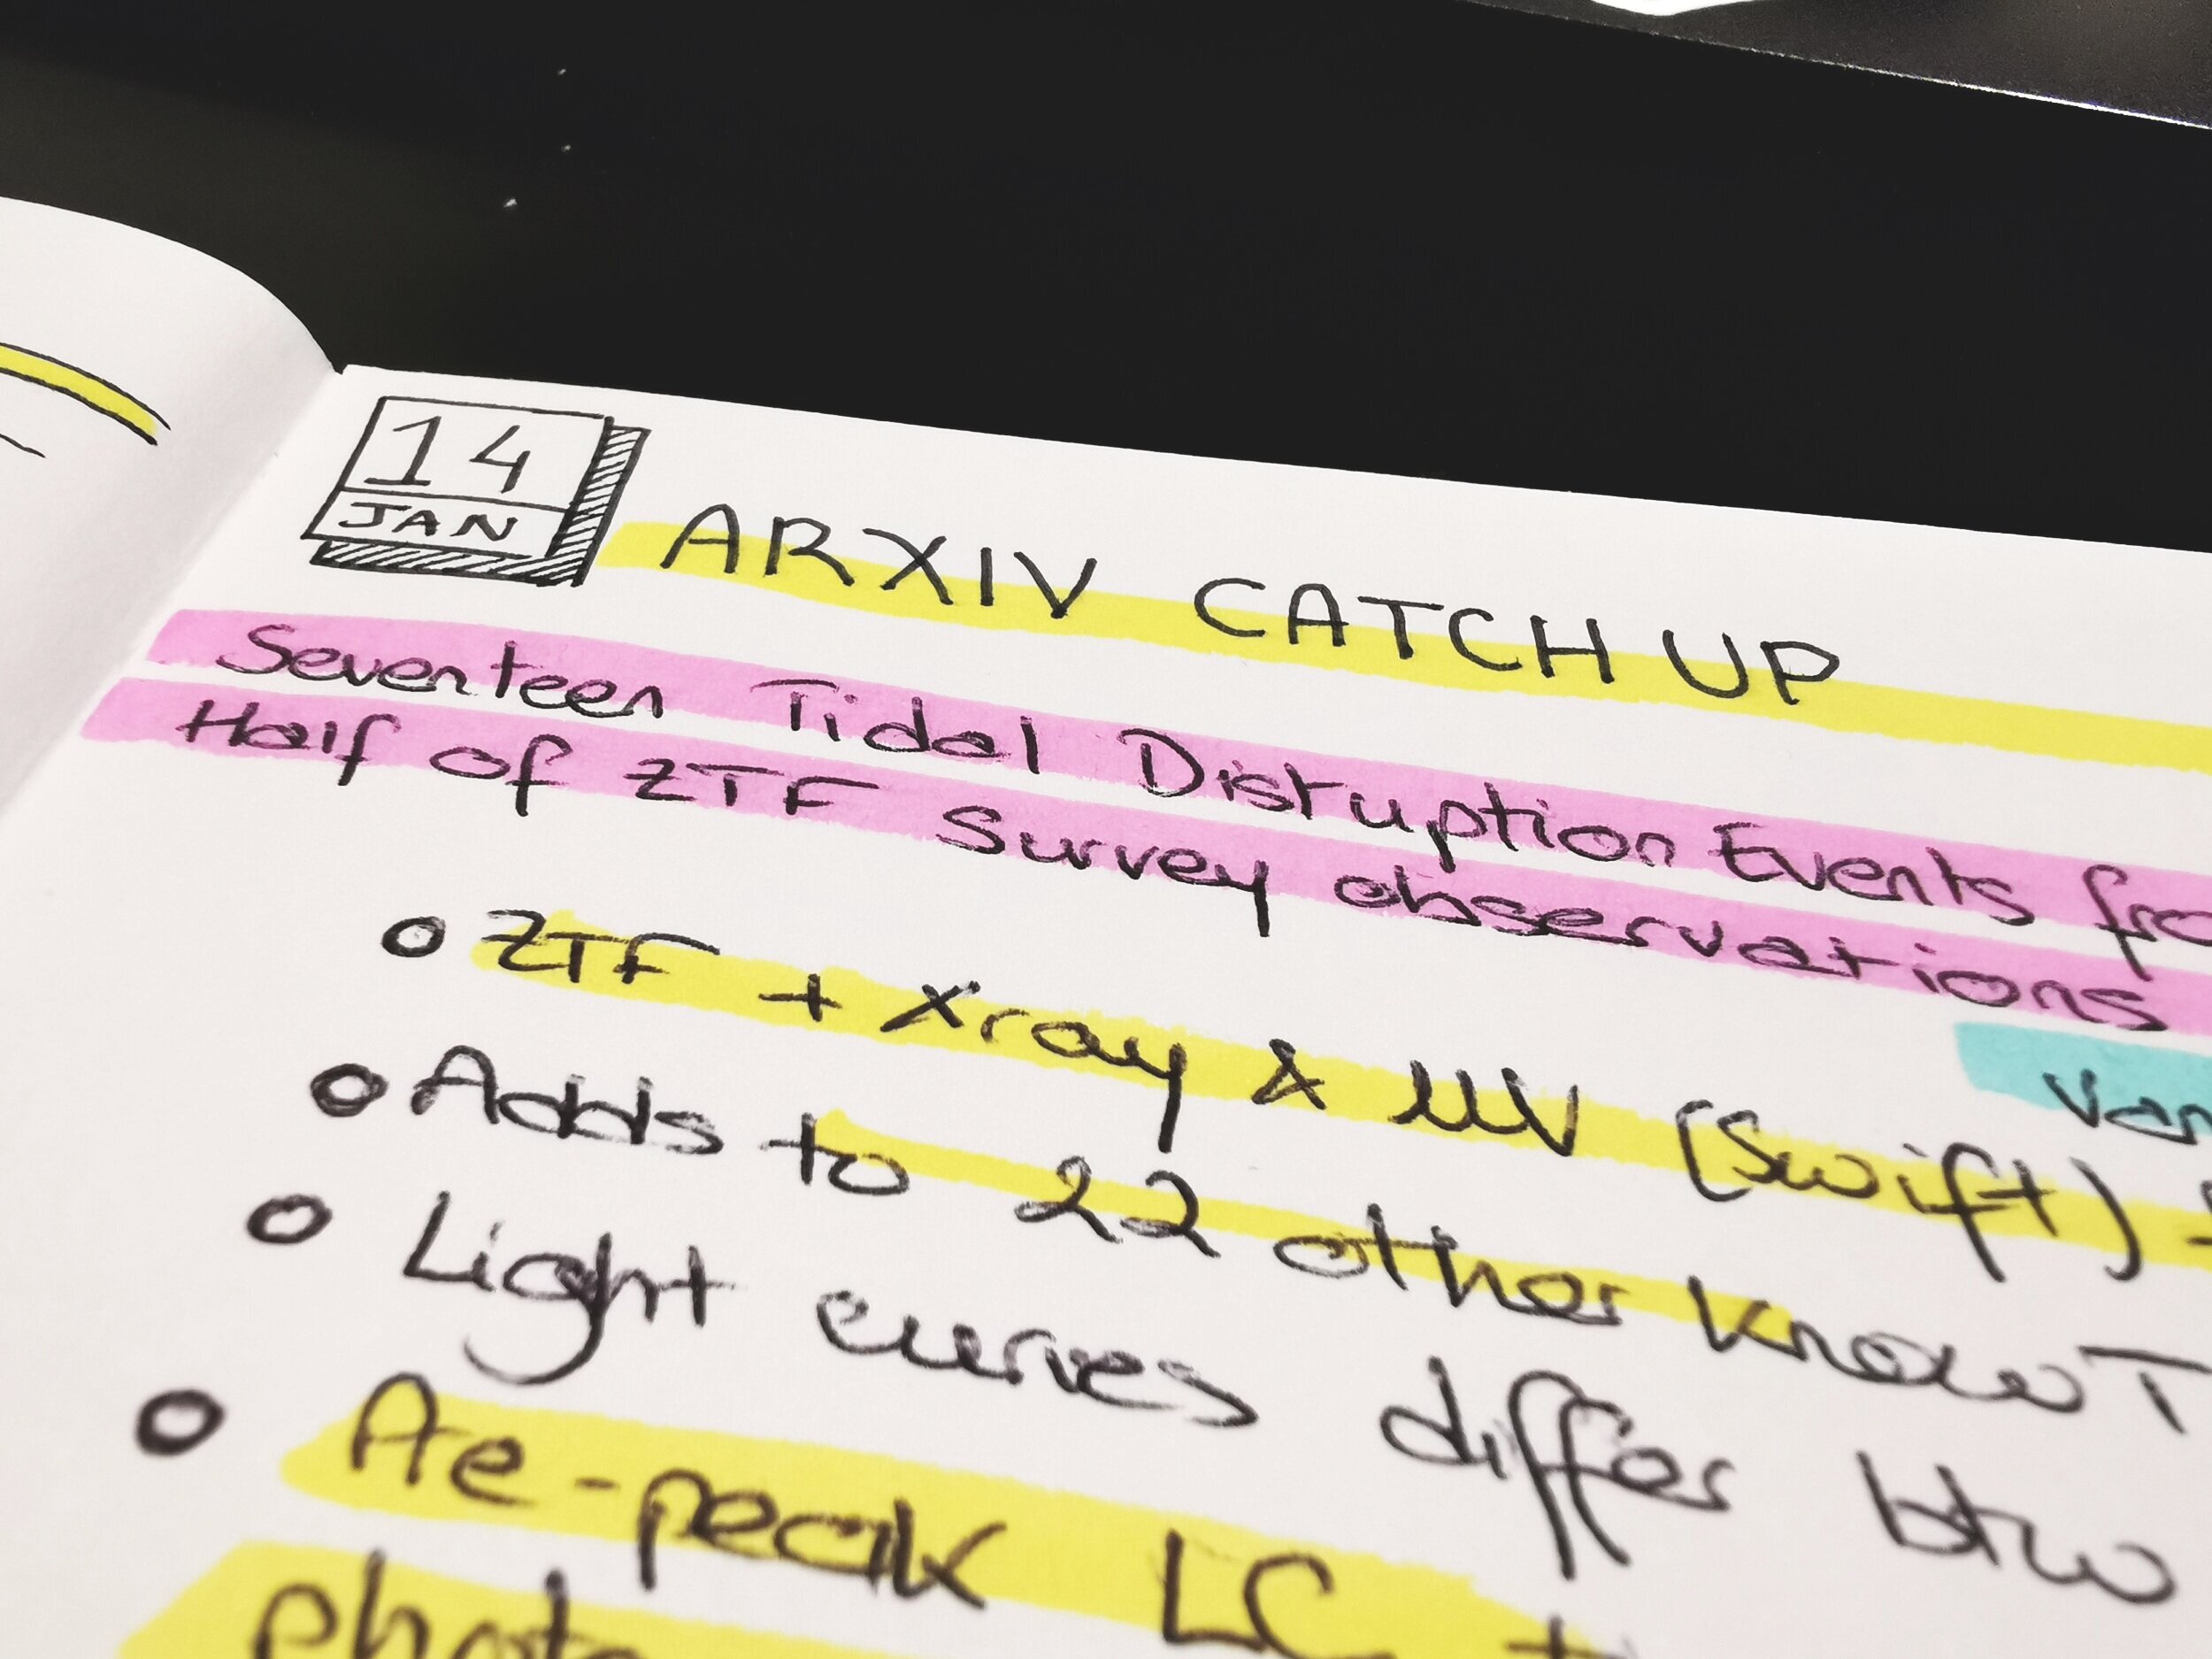 14
JAN
ARXIV CATCH UP
Seventeen Tidal Disruption Events
Half of ZTF Survey observations
ZTF + Xray & UV (Swift)
Adds to 22 other know T
Light curves differ btw
-peak LC